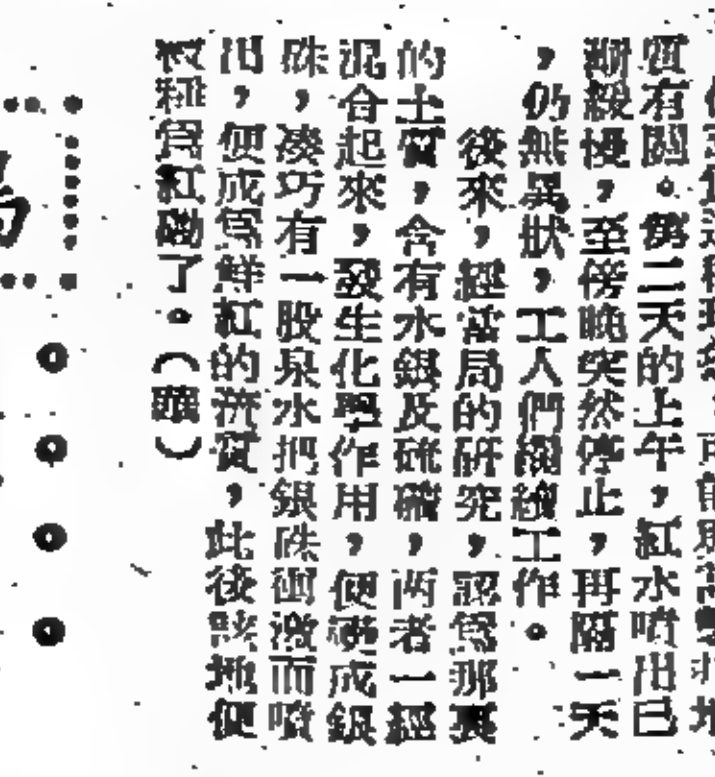 質有關。第二天的上午,紅水噴出已
漸緩慢,至傍晚突然停止,再隔一天
,仍無異狀,工人們繼續工作。
後來,經當局的研究,認爲那裏
的土質,含有水銀及硫磺,兩者一經
混合起來,發生化學作用,便變成銀
硃,凑巧有一股泉水把銀硃衝激而噴
出,便成爲鮮紅的流質,此後該地便
被稱爲紅磡了。